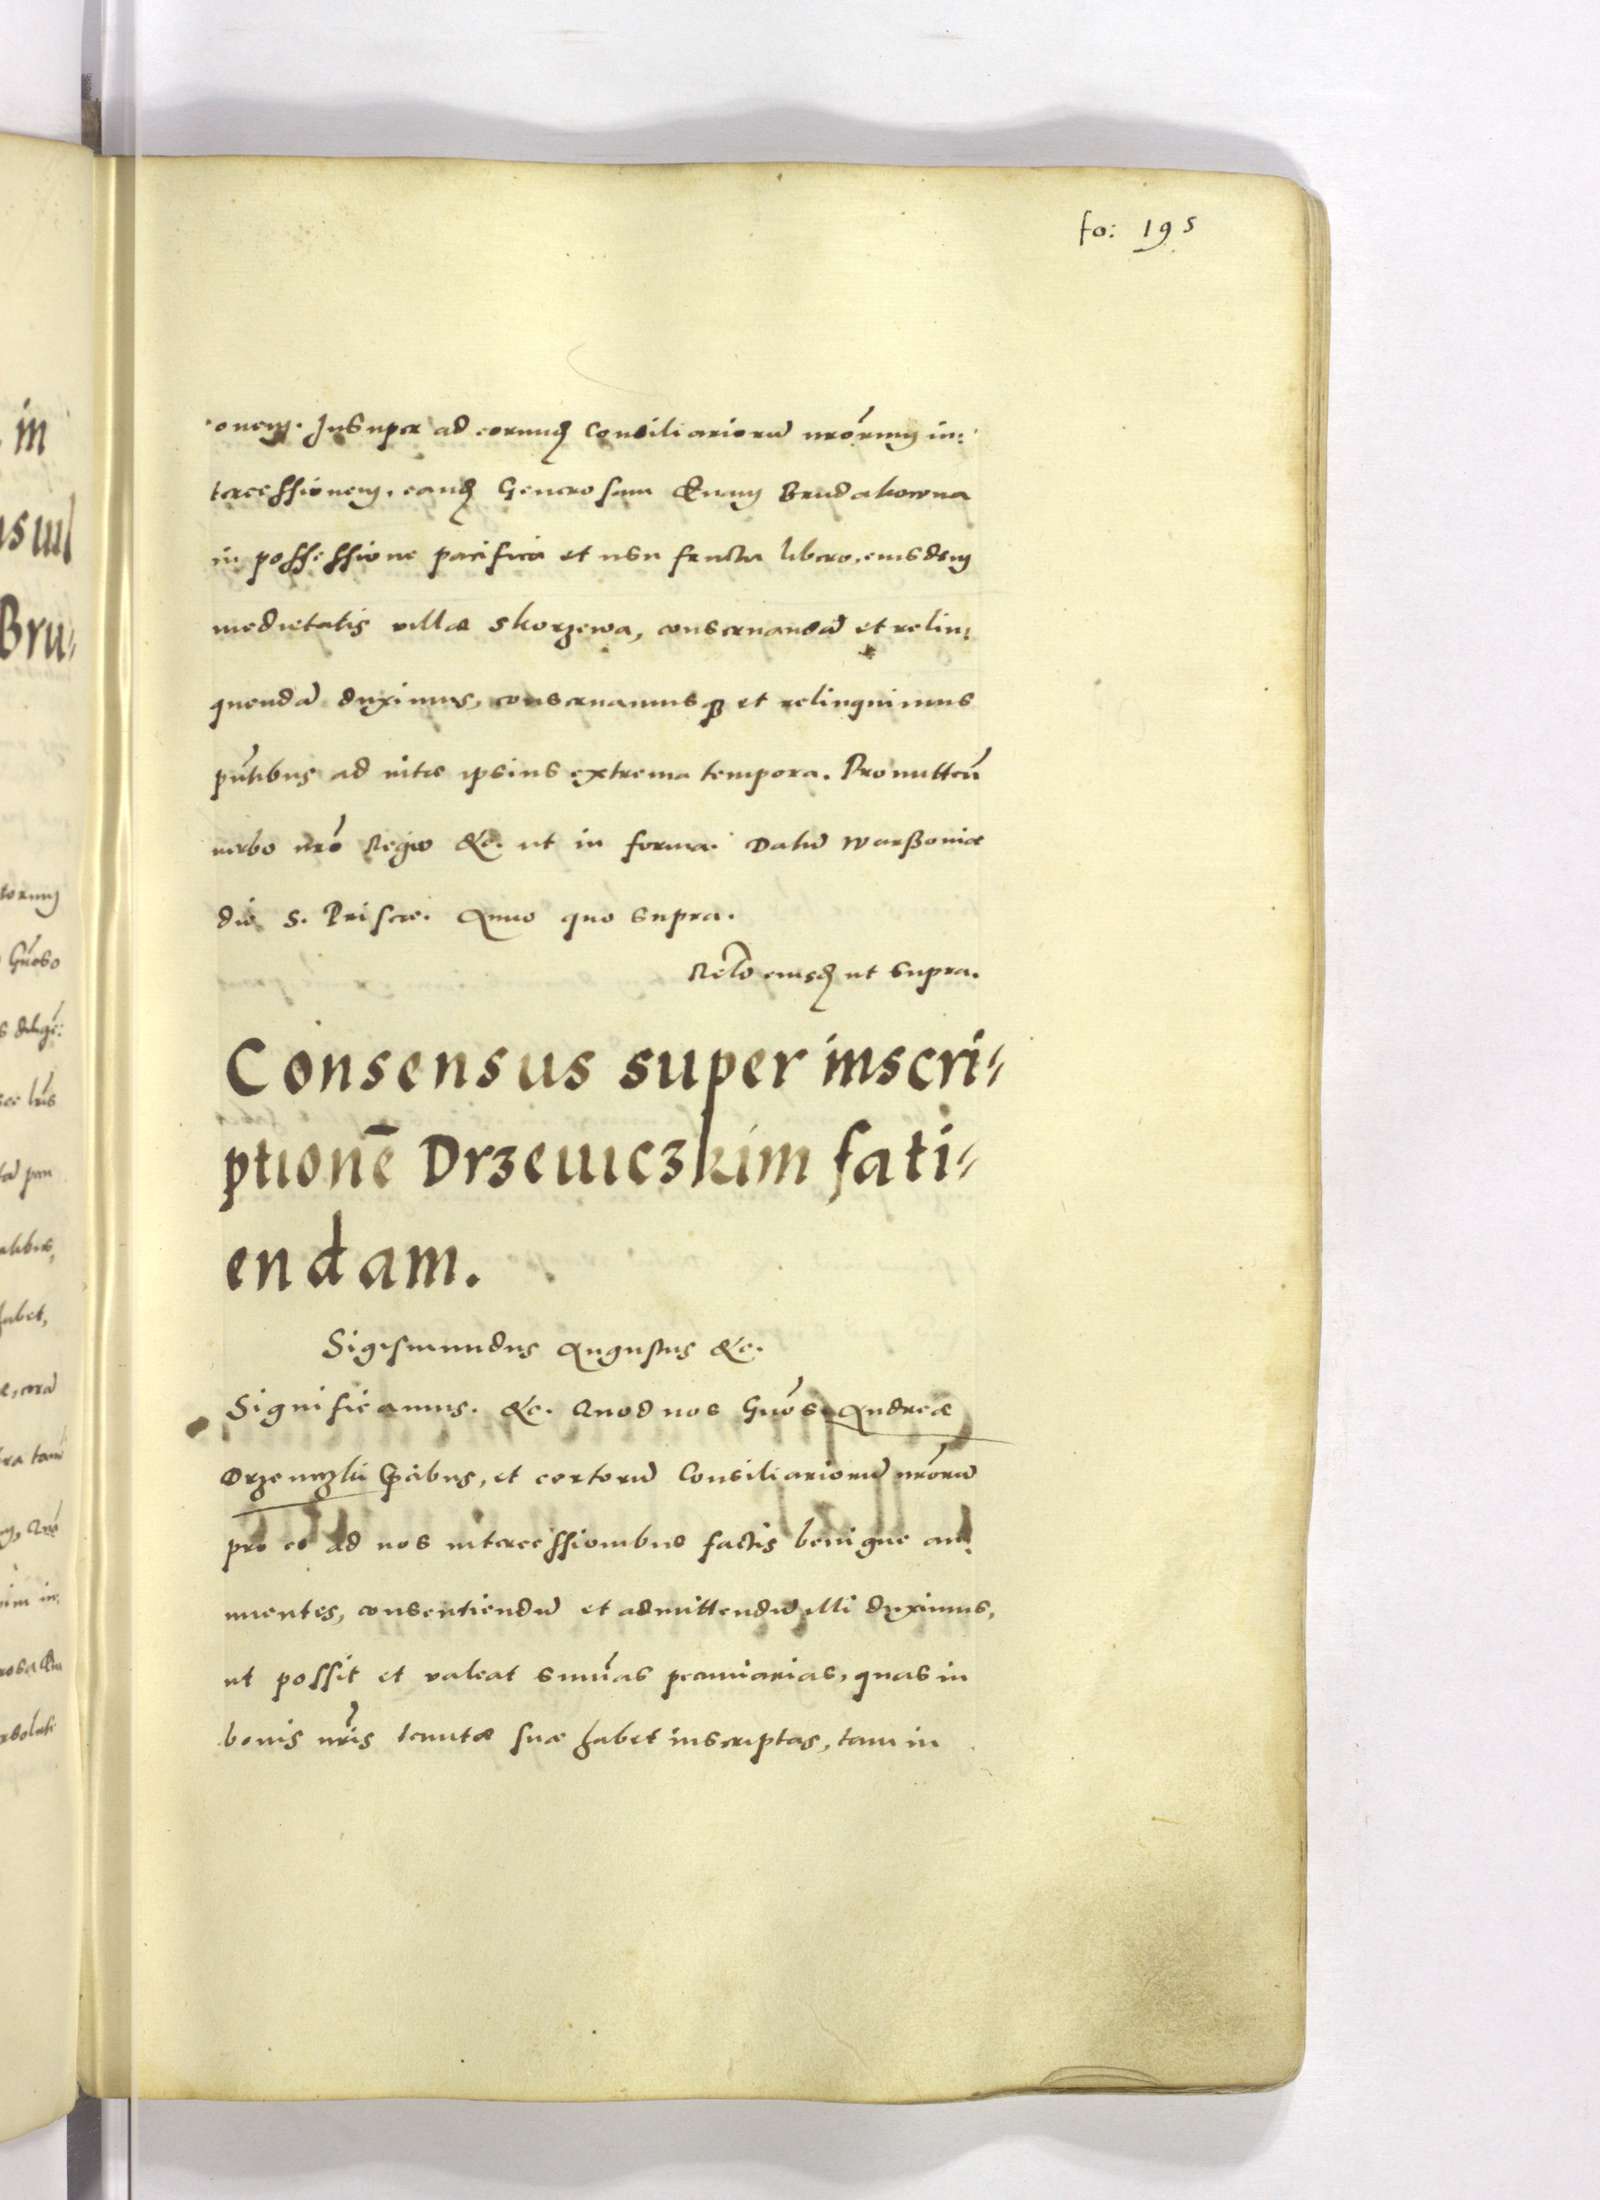 fo: 195
onem. Insuper ad eorund Consiliariorũ nrõrum in:
tercessionem, eand Generosam Annam Brudakowna
in possessione pacifica et usu fructu libero, eiusdem
medietatis villæ Skorzewa, conservandã et relin:
quendã duximus, conservamusq et relinquimus
pñtibus ad vitæ ipsius extrema tempora. Promitteñ
verbo nrõ Regio &c. ut in forma. Datũ Warssoviæ
die S. Priscæ. Anno quo supra.
Relo eiusd ut supra.
Consensus super inscri-
ptionẽ Drzewiczkim fati-
endam.
Sigismundus Augustus &c.
Significamus. &c. Quod nos Gñosi Andreæ
Drzewiczki p̃cibus, et certorũ Consiliariorũ nrõrũ
pro eo ad nos intercessionibus factis benigne an:
nuentes, consentiendũ et admittendũ illi duximus,
ut possit et valeat sum̃as pecuniarias, quas in
bonis nrĩs tenutæ suæ habet inscriptas, tam in